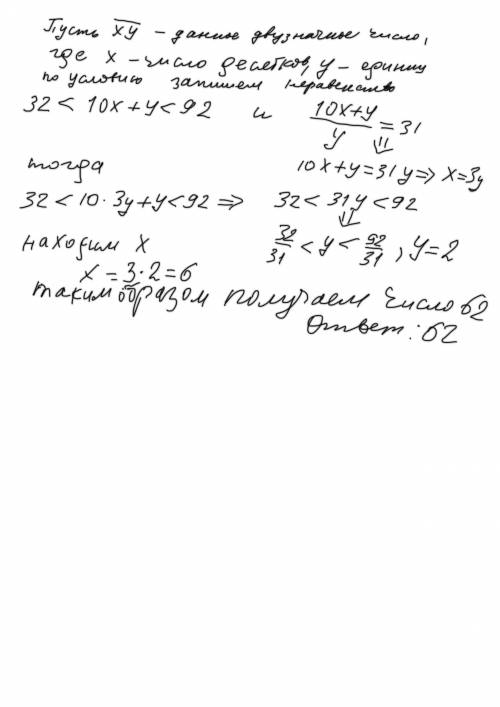 Пусть xy – данные двузначные число,
где x – число десятков, y – единиц
по условию запишем неравенство
32 < 10x + y < 92 и (10x+y)/y = 31
⇓
тогда 10x + y = 31y ⇒ x = 3y
32 < 10·3y + y < 92 ⇒ 32 < 31y < 92
⇓
находим x 32/31 < y < 92/31, y = 2
x = 3·2 = 6
таким образом получаем число 62
Ответ: 62